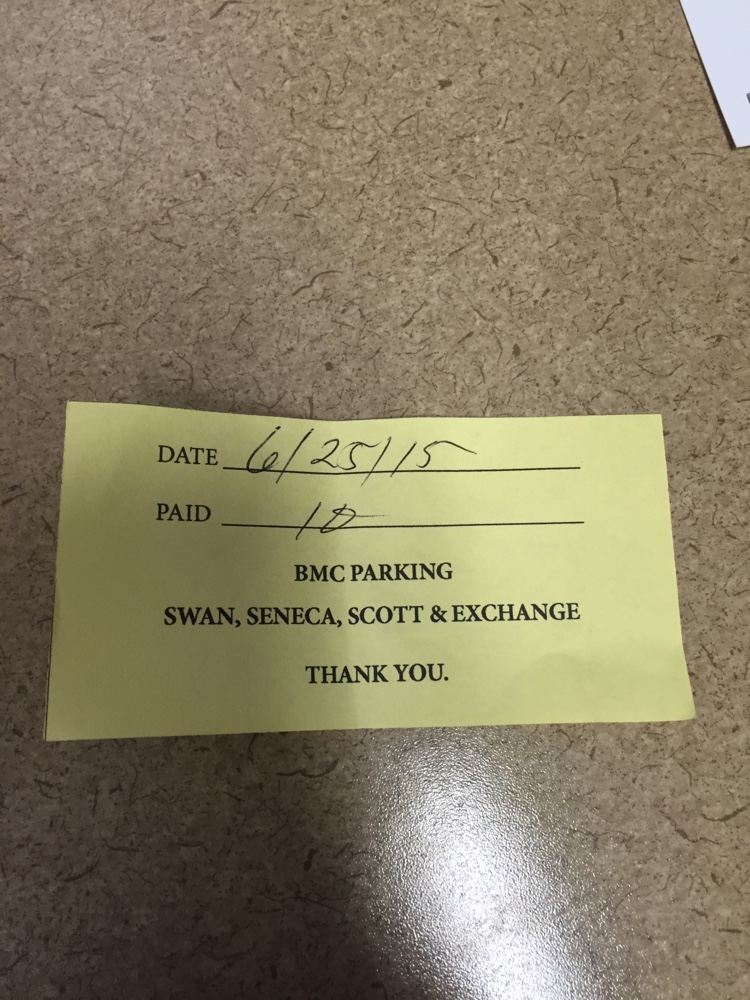 DATE 6/25/15
PAID 10
BMC PARKING
SWAN, SENECA, SCOTT & EXCHANGE
THANK YOU.